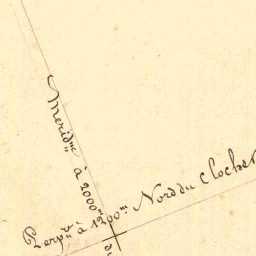 Merid.ne à 2000m
Perp.re à 1200m Nord du Clocher